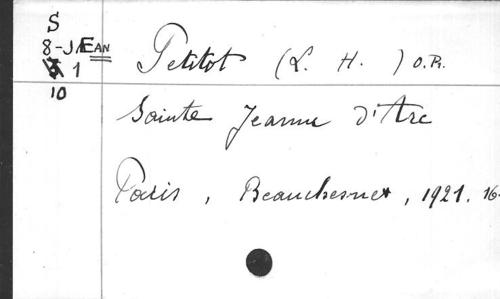 S
8-JÆAN
1
10
Petitot (L. H.) O.P.
Sainte Jeanne d'Arc
Paris, Beauchesne, 1921. 16-